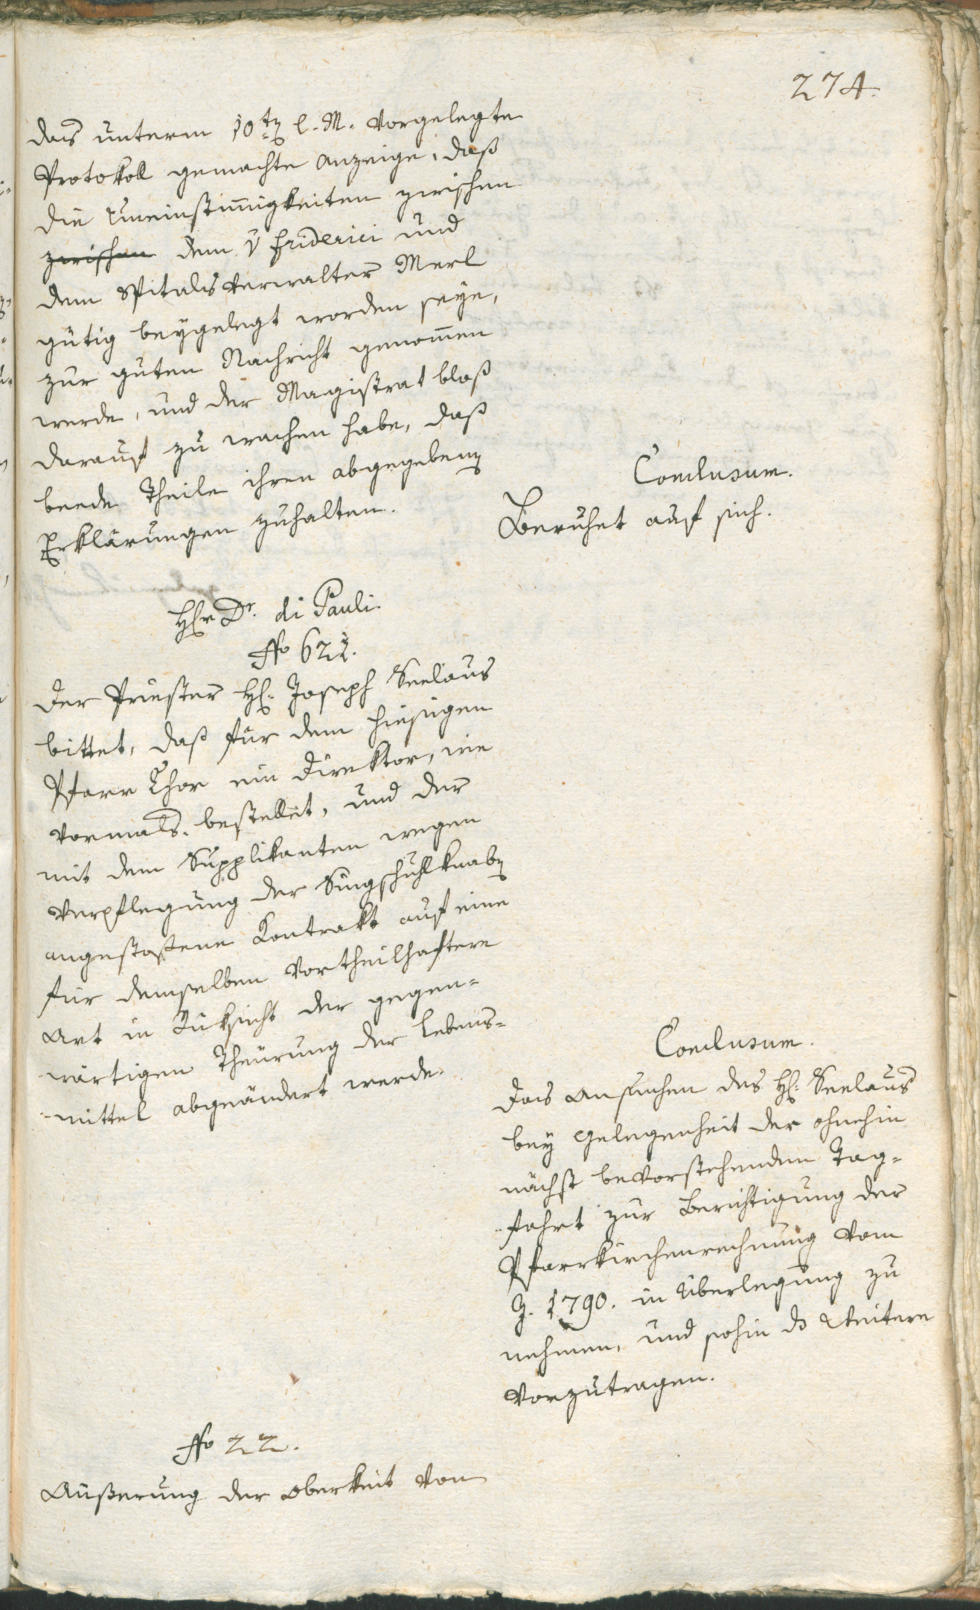 274.
das unterm 10ten l. M. vorgelegte
Protokoll gemachte Anzeige, daß
die Uneinstimmigkeiten zwischen
zwischen dem v Friderici und
dem Spitalsverwalter Merl
gütig beygelegt worden seye,
zur guten Nachricht genommen
werde, und der Magistrat bloß
darauf zu wachen habe, daß
beede Theile ihren abgegebenen
Erklärungen zuhalten.
Conclusum.
Beruhet auf sich.
Hr Dr. di Pauli.
No 621.
Der Priester H: Joseph Seelaus
bittet, daß für dem hiesigen
Pfarr Chor ein Direktor, wie
vormals bestellet, und der
mit dem Supplikanten wegen
Verpflegung der Singschuhlknaben
angestoßene Contrakt auf eine
für demselben vortheilhaftere
Art in Rüksicht der gegen-
wärtigen Theurung der Lebens-
mittel abgeändert werde.
Conclusum.
Das Ansuchen des H: Seelaus
bey Gelegenheit der ohnehin
nächst bevorstehenden Tag-
fahrt zur Berichtigung der
Pfarrkirchenrechnung vom
J. 1790. in Überlegung zu
nehmen, und sohin ds Weitere
vorzutragen.
No 22.
Außerung der Oberkeit von